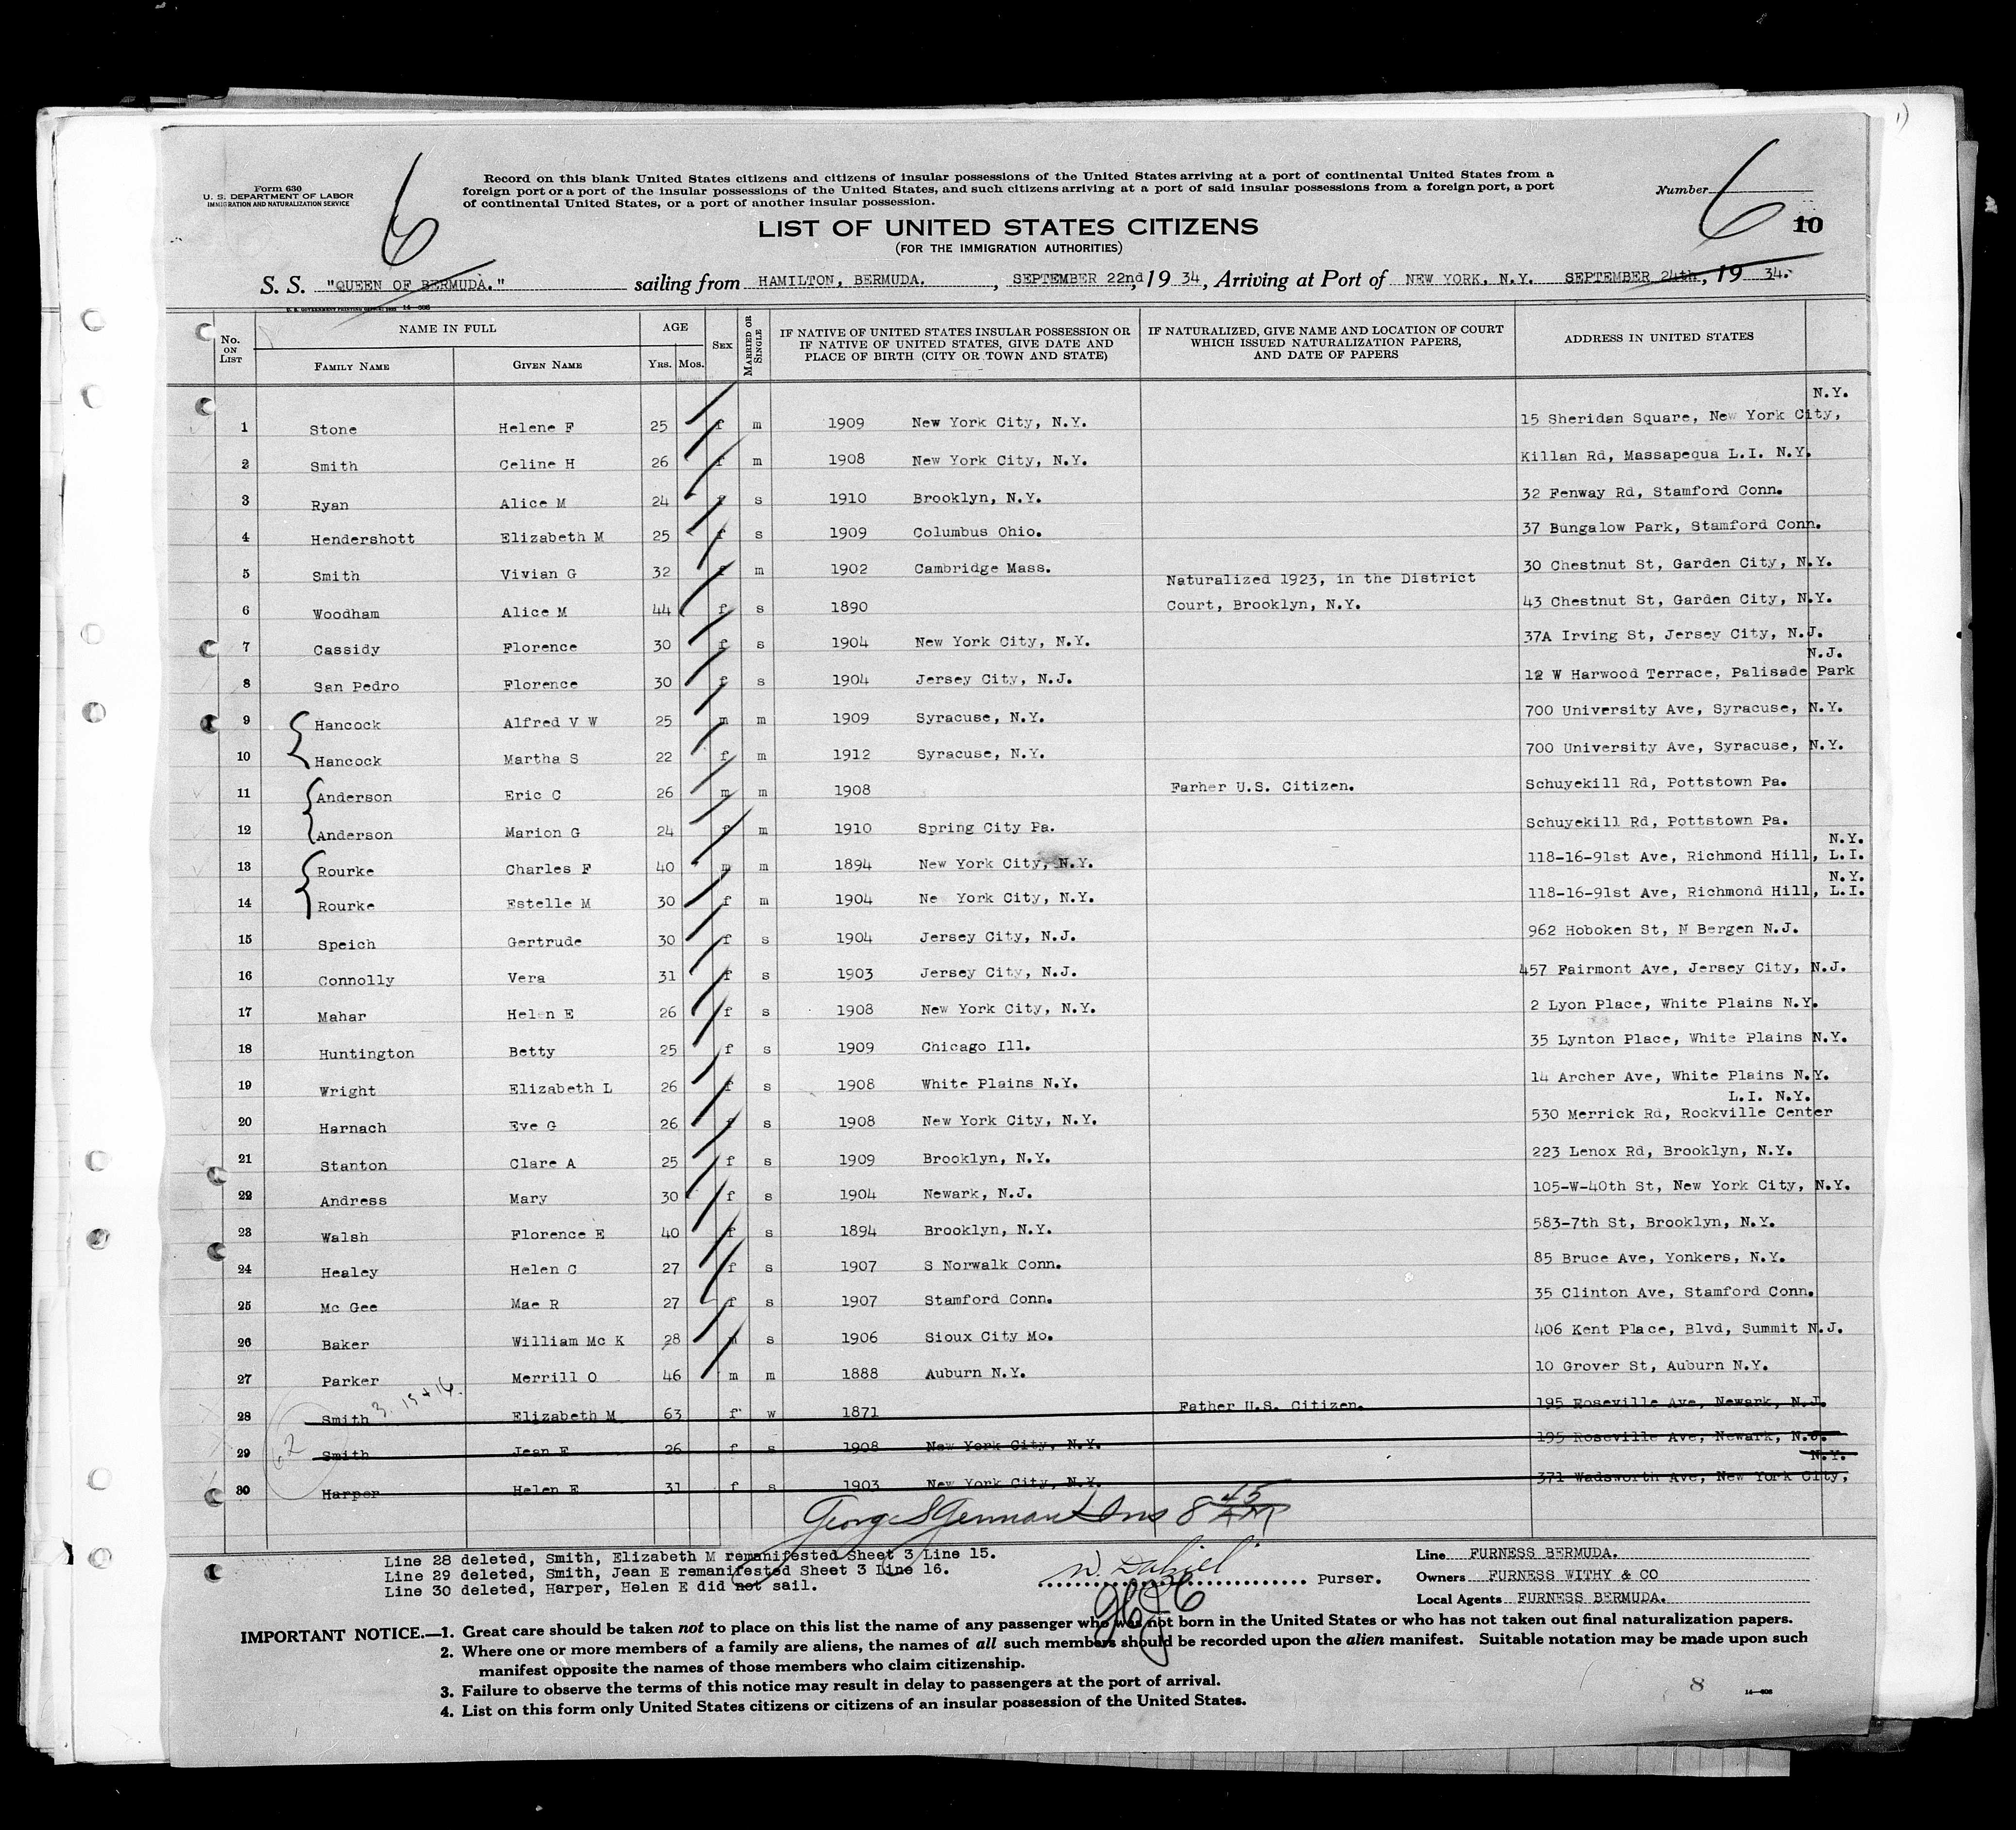 Form 630
U. S. DEPARTMENT OF LABOR
IMMIGRATION AND NATURALIZATION SERVICE
6
Record on this blank United States citizens and citizens of insular possessions of the United States arriving at a port of continental United States from a
foreign port or a port of the insular possessions of the United States, and such citizens arriving at a port of said insular possessions from a foreign port, a port
of continental United States, or a port of another insular possession.
Number
6
10
LIST OF UNITED STATES CITIZENS
(FOR THE IMMIGRATION AUTHORITIES)
S. S. "QUEEN OF BERMUDA." sailing from HAMILTON, BERMUDA. , SEPTEMBER 22nd, 19 34, Arriving at Port of NEW YORK, N.Y. SEPTEMBER 24th, 19 34.
No. ON LIST NAME IN FULL FAMILY NAME GIVEN NAME AGE YRS. MOS. SEX MARRIED OR SINGLE IF NATIVE OF UNITED STATES INSULAR POSSESSION OR IF NATIVE OF UNITED STATES, GIVE DATE AND PLACE OF BIRTH (CITY OR TOWN AND STATE) IF NATURALIZED, GIVE NAME AND LOCATION OF COURT WHICH ISSUED NATURALIZATION PAPERS, AND DATE OF PAPERS ADDRESS IN UNITED STATES
N.Y.
1 Stone Helene F 25 f m 1909 New York City, N.Y. 15 Sheridan Square, New York City,
2 Smith Celine H 26 f m 1908 New York City, N.Y. Killan Rd, Massapequa L.I. N.Y.
3 Ryan Alice M 24 f s 1910 Brooklyn, N.Y. 32 Fenway Rd, Stamford Conn.
4 Hendershott Elizabeth M 25 f s 1909 Columbus Ohio. 37 Bungalow Park, Stamford Conn.
5 Smith Vivian G 32 f m 1902 Cambridge Mass. 30 Chestnut St, Garden City, N.Y.
Naturalized 1923, in the District
6 Woodham Alice M 44 f s 1890 Court, Brooklyn, N.Y. 43 Chestnut St, Garden City, N.Y.
7 Cassidy Florence 30 f s 1904 New York City, N.Y. 37A Irving St, Jersey City, N.J.
N.J.
8 San Pedro Florence 30 f s 1904 Jersey City, N.J. 12 W Harwood Terrace, Palisade Park
9 Hancock Alfred V W 25 m m 1909 Syracuse, N.Y. 700 University Ave, Syracuse, N.Y.
10 Hancock Martha S 22 f m 1912 Syracuse, N.Y. 700 University Ave, Syracuse, N.Y.
11 Anderson Eric C 26 m m 1908 Farher U.S. Citizen. Schuyekill Rd, Pottstown Pa.
12 Anderson Marion G 24 f m 1910 Spring City Pa. Schuyekill Rd, Pottstown Pa.
N.Y.
13 Rourke Charles F 40 m m 1894 New York City, N.Y. 118-16-91st Ave, Richmond Hill, L.I.
N.Y.
14 Rourke Estelle M 30 f m 1904 Ne York City, N.Y. 118-16-91st Ave, Richmond Hill, L.I.
15 Speich Gertrude 30 f s 1904 Jersey City, N.J. 962 Hoboken St, N Bergen N.J.
16 Connolly Vera 31 f s 1903 Jersey City, N.J. 457 Fairmont Ave, Jersey City, N.J.
17 Mahar Helen E 26 f s 1908 New York City, N.Y. 2 Lyon Place, White Plains N.Y.
18 Huntington Betty 25 f s 1909 Chicago Ill. 35 Lynton Place, White Plains N.Y.
19 Wright Elizabeth L 26 f s 1908 White Plains N.Y. 14 Archer Ave, White Plains N.Y.
L.I. N.Y.
20 Harnach Eve G 26 f s 1908 New York City, N.Y. 530 Merrick Rd, Rockville Center
21 Stanton Clare A 25 f s 1909 Brooklyn, N.Y. 223 Lenox Rd, Brooklyn, N.Y.
22 Andress Mary 30 f s 1904 Newark, N.J. 105-W-40th St, New York City, N.Y.
23 Walsh Florence E 40 f s 1894 Brooklyn, N.Y. 583-7th St, Brooklyn, N.Y.
24 Healey Helen C 27 f s 1907 S Norwalk Conn. 85 Bruce Ave, Yonkers, N.Y.
25 Mc Gee Mae R 27 f s 1907 Stamford Conn. 35 Clinton Ave, Stamford Conn.
26 Baker William Mc K 28 m s 1906 Sioux City Mo. 406 Kent Place, Blvd, Summit N.J.
27 Parker Merrill O 46 m m 1888 Auburn N.Y. 10 Grover St, Auburn N.Y.
3. 15 + 16.
28 Smith Elizabeth M 63 f w 1871 Father U.S. Citizen. 195 Roseville Ave, Newark, N.J.
62
29 Smith Jean E 26 f s 1908 New York City, N.Y. 195 Roseville Ave, Newark, N.J.
N.Y.
30 Harper Helen E 31 f s 1903 New York City, N.Y. 371 Wadsworth Ave, New York City,
8 45 AM
Line 28 deleted, Smith, Elizabeth M remanifested Sheet 3 Line 15.
Line 29 deleted, Smith, Jean E remanifested Sheet 3 Line 16.
Line 30 deleted, Harper, Helen E did not sail.
Purser.
Line FURNESS BERMUDA.
Owners FURNESS WITHY & CO
Local Agents FURNESS BERMUDA.
IMPORTANT NOTICE.—1. Great care should be taken not to place on this list the name of any passenger who was not born in the United States or who has not taken out final naturalization papers.
2. Where one or more members of a family are aliens, the names of all such members should be recorded upon the alien manifest. Suitable notation may be made upon such
manifest opposite the names of those members who claim citizenship.
3. Failure to observe the terms of this notice may result in delay to passengers at the port of arrival.
4. List on this form only United States citizens or citizens of an insular possession of the United States.
8
14—608